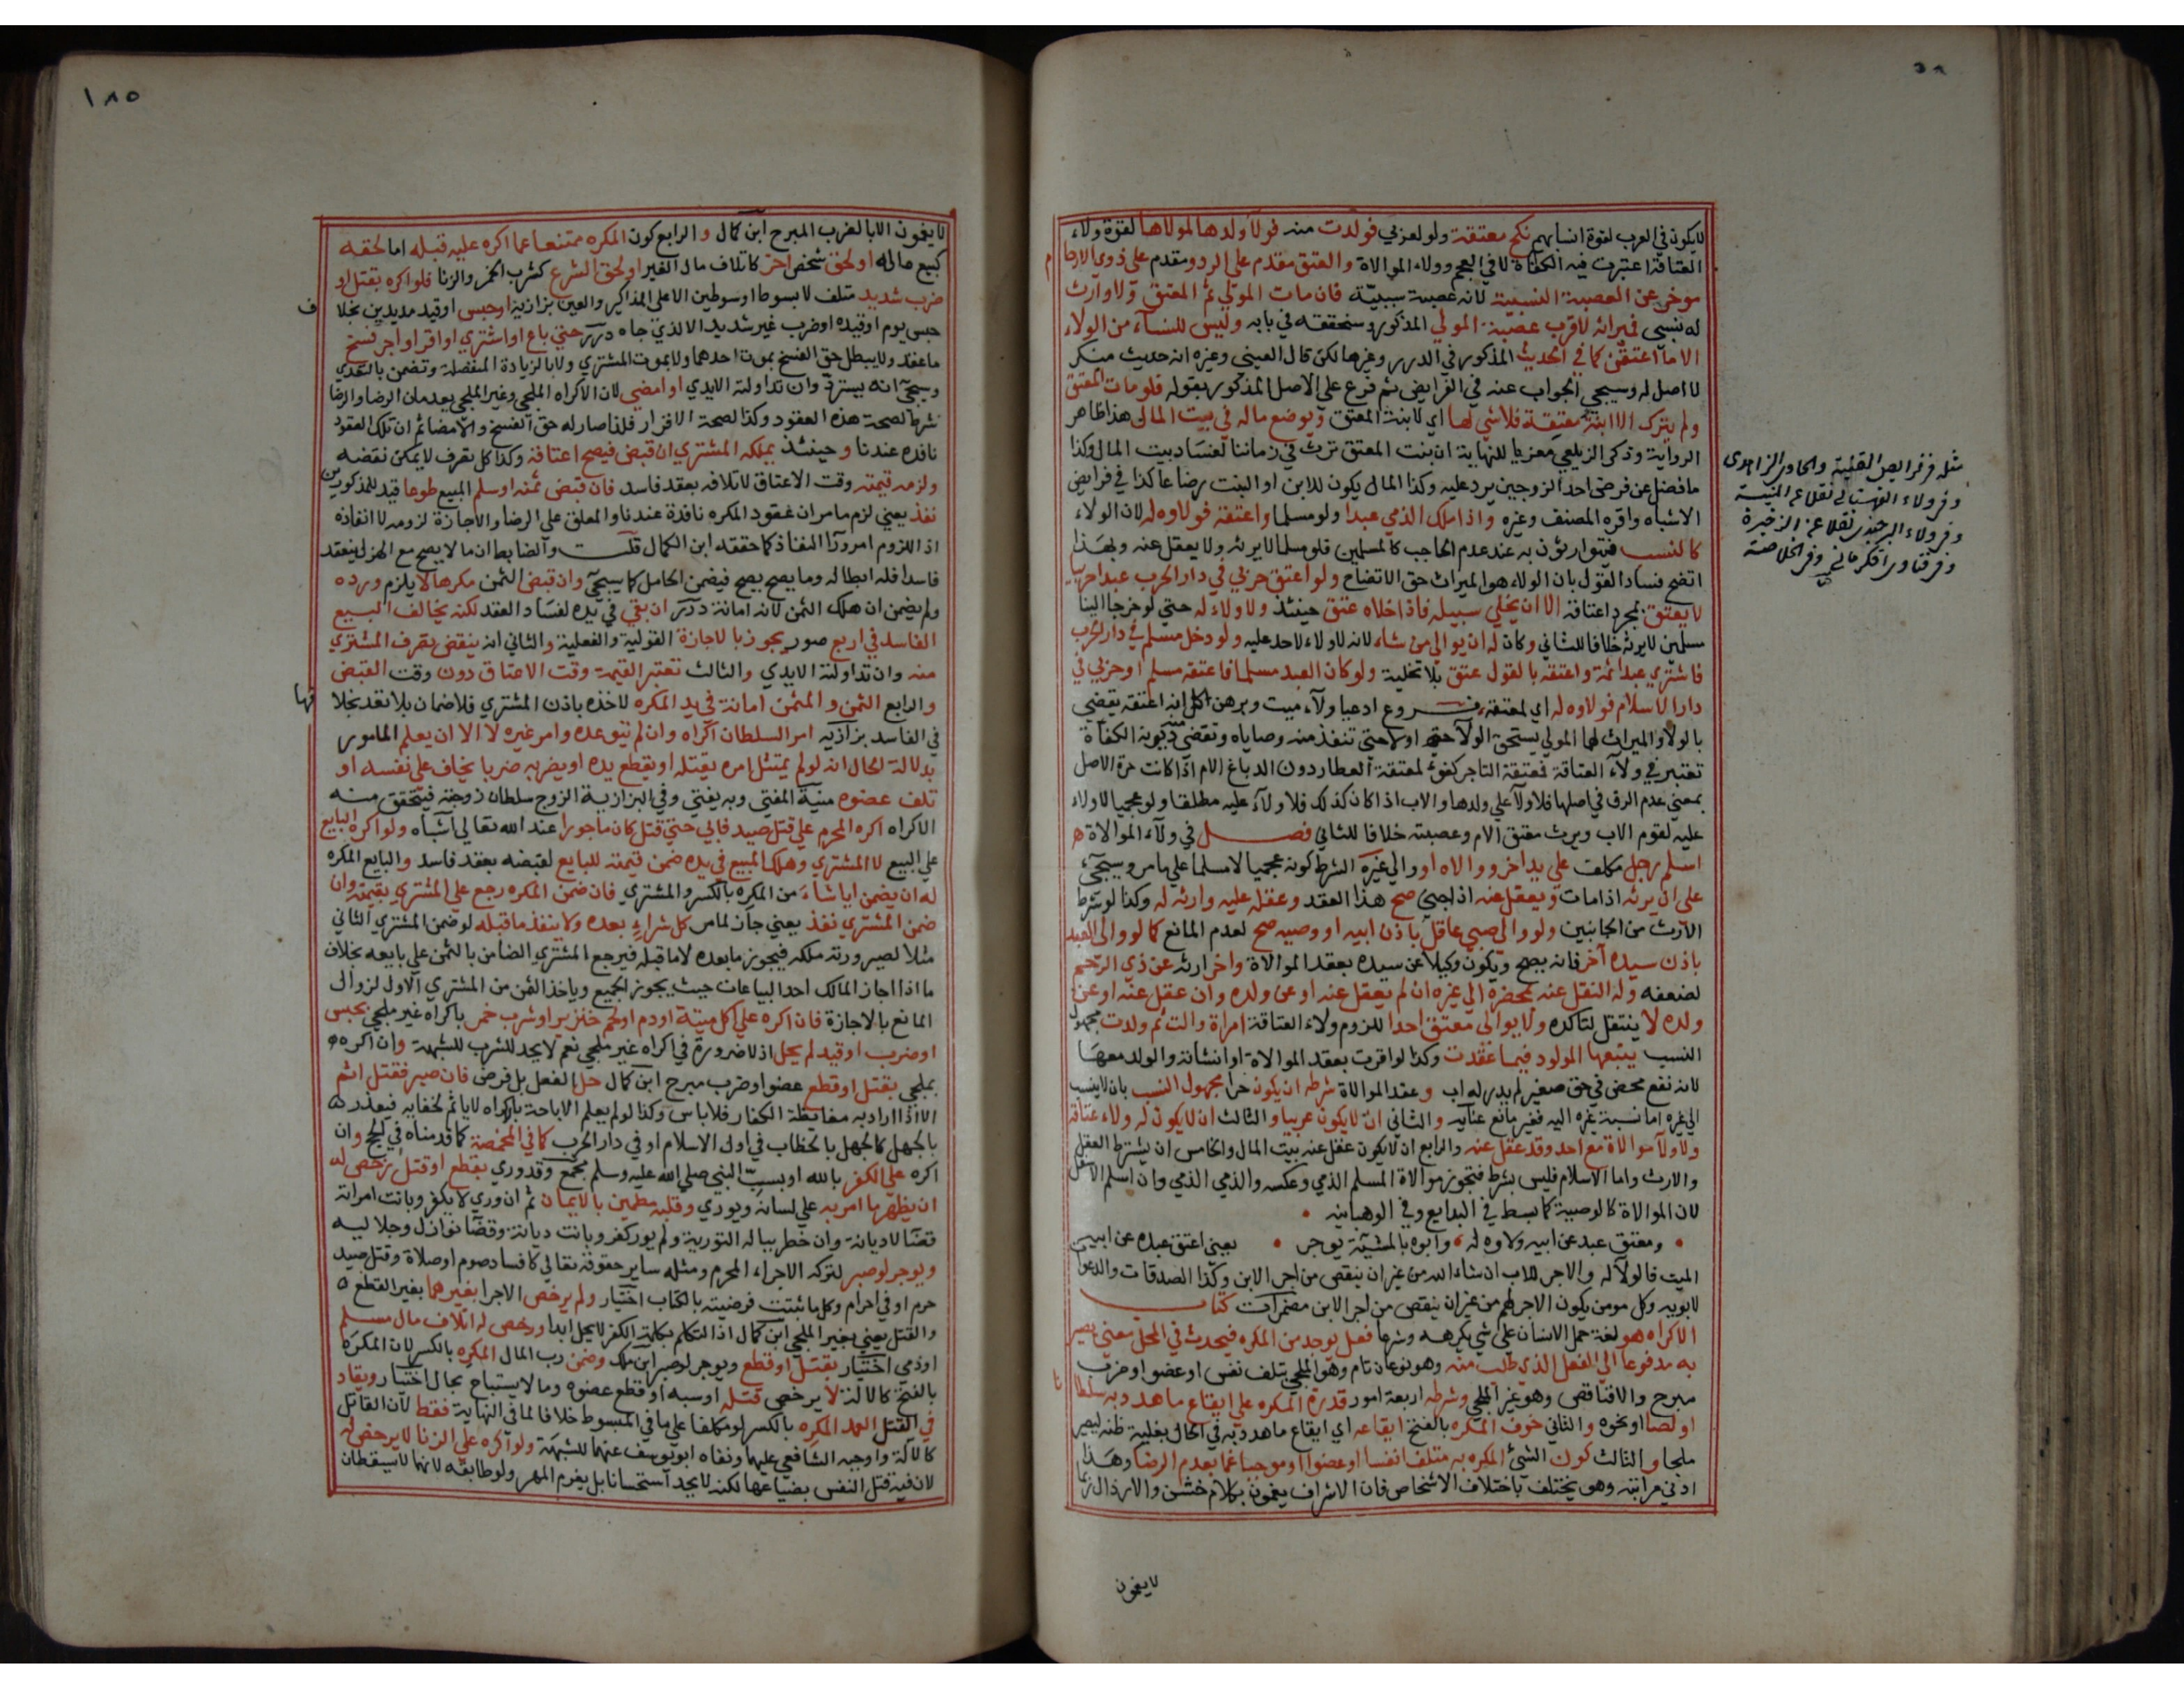 لايكون في العرب لقوة انسابهم نكح معتقة ولو لعربي فولدت منه فولاء ولدها لمولاها لقوة ولاء
العتاقة اعتبرت فيه الكفاءة لا في العجم وولاء الموالاة والعتق مقدم على الرد ومقدم على ذوي الارحا م
موخر عن العصبة النسبية لانه عصبة سببية فان مات المولى ثم المعتق ولا وارث
له نسبي فميراثه لاقرب عصبة المولي المذكور وسنحققه في بابه وليس للنساء من الولاء
الا ما اعتقن كما في الحديث المذكور في الدرر وغيرها لكن قال العيني وغيره انه حديث منكر
لا اصل له وسيجي الجواب عنه في الفرايض ثم فرع على الاصل المذكور بقوله فلو مات المعتق
ولم يترك الا ابنة معتقة فلا شي لها اي لابنة المعتق ويوضع ماله في بيت المال هذا ظاهر
الرواية وذكر الزيلعي معزيا للنهاية ان بنت المعتق ترث في زماننا لفساد بيت المال وكذا
مافضل عن فرض احد الزوجين يرد عليه وكذا المال يكون للابن او البنت رضاعا كذا في فرايض
الاشباه واقره المصنف وغيره واذا ملك الذمي عبدا ولو مسلما واعتقه فولاوه له لان الولاء
كالنسب فيتوارثون به عند عدم الحاجب كالمسلمين فلو مسلما لايرثه ولا يعقل عنه وبهذا
اتضح فساد القول بان الولاء هو الميراث حق الاتضاح ولو اعتق حربي في دار الحرب عبدا حربيا
لايعتق بمجرد اعتاقه الا ان يخلي سبيله فاذا خلاه عتق حينئذ ولا ولاء له حتي لو خرجا الينا
مسلمين لايرثه خلافا للثاني وكان له ان يوالي من شاء لانه لا ولاء لاحد عليه ولو دخل مسلم في دار الحرب
فاشتري عبدا ثمة واعتقه بالقول عتق بلا تخلية ولو كان العبد مسلما فاعتقه مسلم او حربي في
دار الاسلام فولاوه له اي لمعتقه فروع ادعيا ولاء ميت وبرهن كل انه اعتقه يقضي
بالولاء والميراث لهما المولي يستحق الولاء اولا حتي تنفذ منه وصاياه وتقضي ديونه الكفاءة
تعتبر في ولاء العتاقة فمعتقة التاجر كفوء لمعتقة العطار دون الدباغ الام اذا كانت حرة الاصل
بمعني عدم الرق في اصلها فلا ولاء علي ولدها والاب اذا كان كذلك فلا ولاء عليه مطلقا ولو عجميا لا ولاء
عليه لقوم الاب ويرث معتق الام وعصبته خلافا للثاني فصل في ولاء الموالاة
اسلم رجل مكلف علي يد اخر ووالاه او والي غيره الشرط كونه عجميا لا مسلما علي ما مر وسيجئ
على ان يرثه اذا مات ويعقل عنه اذا جني صح هذا العقد وعقله عليه وارثه له وكذا لو شرط
الارث من الجانبين ولو والي صبي عاقل باذن ابيه او وصيه صح لعدم المانع كما لو والي العبد
باذن سيده آخر فانه يصح ويكون وكيلا عن سيده بعقد الموالاة واخر ارثه عن ذي الرحم
لضعفه وله النقل عنه بمحضره الي غيره ان لم يعقل عنه او عن ولده وان عقل عنه او عن
ولده لا ينتقل لتاكده ولايوالي معتق احدا للزوم ولاء العتاقة امراة والت ثم ولدت مجهول
النسب يتبعها المولود فيما عقدت وكذا لو اقرت بعقد الموالاة او انشاته والولد معها
لانه نفع محض في حق صغير لم يدر له اب وعقد الموالاة شرطه ان يكون حرا مجهول النسب بان لاينسب
الي غيره اما نسبة غيره اليه فغير مانع عناية والثاني ان لايكون عربيا والثالث ان لايكون له ولاء عتاقة
ولا ولاء موالاة مع احد وقد عقل عنه والرابع ان لايكون عقل عنه بيت المال والخامس ان يشترط العقل
والارث واما الاسلام فليس بشرط فتجوز موالاة المسلم الذمي وعكسه والذمي الذمي وان اسلم الاسفل
لان الموالاة كالوصية كما بسط في البدايع وفي الوهبانيه
ومعتق عبد عن ابيه ولاوه له وابوه بالمشيئة يوجر يعني اعتق عبده عن ابيه
الميت فالولاء له والاجر للاب ان شاء الله من غير ان ينقص من اجر الابن وكذا الصدقات والدعوات
لابويه وكل مومن يكون الاجر لهم من غير ان ينقص من اجر الابن مضمرات كتاب
الاكراه هو لغة حمل الانسان علي شي يكرهه وشرعا فعل يوجد من المكره فيحدث في المحل معني يصير
به مدفوعا الي الفعل الذي طلب منه وهو نوعان تام وهو الملجي بتلف نفس او عضو او ضرب
مبرح والا فناقص وهو غير الملجي وشرطه اربعة امور قدرة المكره علي ايقاع ما هدد به سلطانا
او لصا او نحوه والثاني خوف المكره بالفتح ايقاعه اي ايقاع ما هدد به في الحال بغلبة ظنه ليصير
ملجا والثالث كون الشئ المكره به متلفا نفسا او عضوا او موجبا غما يعدم الرضا وهذا
ادني مراتبه وهو يختلف باختلاف الاشخاص فان الاشراف يغمون بكلام خشن والارذال ربما
لايغمون
مثله في فرايض القنية والحاوي الزاهدي
وفي ولاء القهستاني نقلا عن المنية
وفي ولاء البرجندي نقلا عن الذخيرة
وفي فتاوي الكرماني وفي الخلاصة
١٨٥
لايغمون الا بالضرب المبرح ابن كمال والرابع كون المكره ممتنعا عما اكره عليه قبله اما لحقه
كبيع ماله او لحق شخص اخر كاتلاف مال الغير او لحق الشرع كشرب الخمر والزنا فلو اكره بقتل او
ضرب شديد متلف لا بسوط او سوطين الا على المذاكير والعين بزازية او حبس او قيد مديدين بخلاف
حبس يوم او قيده او ضرب غير شديد الا لذي جاه درر حتي باع او اشتري او اقر او اجر فسخ
ما عقد ولايبطل حق الفسخ بموت احدهما ولا بموت المشتري ولا بالزيادة المنفصلة وتضمن بالتعدي
وسيجئ انه يسترد وان تداولته الايدي او امضي لان الاكراه الملجي وغير الملجي يعدمان الرضا والرضا
شرط لصحة هذه العقود وكذا لصحة الاقرار فلذا صار له حق الفسخ والامضا ثم ان تلك العقود
نافذه عندنا وحينئذ يملكه المشتري ان قبض فيصح اعتاقه وكذا كل تصرف لايمكن نقضه
ولزمه قيمته وقت الاعتاق لاتلافه بعقد فاسد فان قبض ثمنه او سلم المبيع طوعا قيد للمذكورين
نفذ يعني لزم مامر ان عقود المكره نافذة عندنا والمعلق علي الرضا والاجازة لزومه لا انفاذه
اذ اللزوم امر ورآ النفاذ كما حققه ابن الكمال قلت والضابط ان ما لا يصح مع الهزل ينعقد
فاسدا فله ابطاله وما يصح يصح فيضمن الحامل كما سيجئ وان قبض الثمن مكرها لا يلزم ورده
ولم يضمن ان هلك الثمن لانه امانة درر ان بقي في يده لفساد العقد لكنه يخالف البيع
الفاسد في اربع صور يجوز بالاجازة القولية والفعلية والثاني انه ينقض تصرف المشتري
منه وان تداولته الايدي والثالث تعتبر القيمة وقت الاعتاق دون وقت القبض
والرابع الثمن والمثمن امانة في يد المكره لاخذه باذن المشتري فلا ضمان بلا تعد بخلافها
في الفاسد بزازيه امر السلطان اكراه وان لم يتوعده وامر غيره لا الا ان يعلم المامور
بدلالة الحال انه لو لم يمتثل امره يقتله او يقطع يده او يضربه ضربا يخاف علي نفسه او
تلف عضوه منية المفتي وبه يفتي وفي البزازية الزوج سلطان زوجته فيتحقق منه
الاكراه اكره المحرم علي قتل صيد فابي حتي قتل كان ماجورا عند الله تعالي اشباه ولو اكره البايع
علي البيع لا المشتري وهلك المبيع في يده ضمن قيمته للبايع لقبضه بعقد فاسد والبايع المكره
له ان يضمن ايا شاء من المكره بالكسر والمشتري فان ضمن المكره رجع علي المشتري بقيمته وان
ضمن المشتري نفذ يعني جاز لما مر كل شراء بعده ولا ينفذ ما قبله لو ضمن المشتري الثاني
مثلا لصيرورته ملكه فيجوز ما بعده لا ما قبله فيرجع المشتري الضامن بالثمن علي بايعه بخلاف
ما اذا اجاز المالك احد البياعات حيث يجوز الجميع وياخذ الثمن من المشتري الاول لزوال
المانع بالاجازة فان اكره علي اكل ميتة او دم او لحم خنزير او شرب خمر باكراه غير ملجي بحبس
او ضرب او قيد لم يحل اذ لا ضرورة في اكراه غير ملجي نعم لا يحد للشرب للشبهة وان اكره
بملجي بقتل او قطع عضو او ضرب مبرح ابن كمال حل الفعل بل فرض فان صبر فقتل اثم
الا اذا اراد به مغايظة الكفار فلا باس وكذا لو لم يعلم الاباحة بالاكراه لاياثم لخفايه فيعذر
بالجهل كالجهل بالخطاب في اول الاسلام او في دار الحرب كما في المخمصة كما قدمناه في الحج وان
اكره علي الكفر بالله او بسب النبي صلي الله عليه وسلم مجمع وقدوري بقطع او قتل رخص له
ان يظهر ما امر به علي لسانه ويوري وقلبه مطمين بالايمان ثم ان وري لايكفر وبانت امراته
قضا لا ديانة وان خطر بباله التورية ولم يور كفر وبانت ديانة وقضا نوازل وجلاليه
ويوجر لو صبر لتركه الاجراء المحرم ومثله ساير حقوقه تعالي كافساد صوم او صلاة وقتل صيد
حرم او في احرام وكل ما ثبتت فرضيته بالكتاب اختيار ولم يرخص الاجرا بغيرهما بغير القطع
والقتل يعني بغير الملجي ابن كمال اذ التكلم بكلمة الكفر لايحل ابدا ورخص له اتلاف مال مسلم
او ذمي اختيار بقتل او قطع ويوجر لو صبر ابن ملك وضمن رب المال المكره بالكسر لان المكره
بالفتح كالالة لا يرخص قتله او سبه او قطع عضوه وما لا يستباح بحال اختيار ويقاد
في القتل العمد المكره بالكسر لو مكلفا علي ما في المبسوط خلافا لما في النهاية فقط لان القاتل
كالالة واوجبه الشافعي عليهما ونفاه ابو يوسف عنهما للشبهة ولو اكره علي الزنا لايرخص له
لان فيه قتل النفس بضياعها لكنه لايحد استحسانا بل يغرم المهر ولو طايعة لانهما لايسقطان